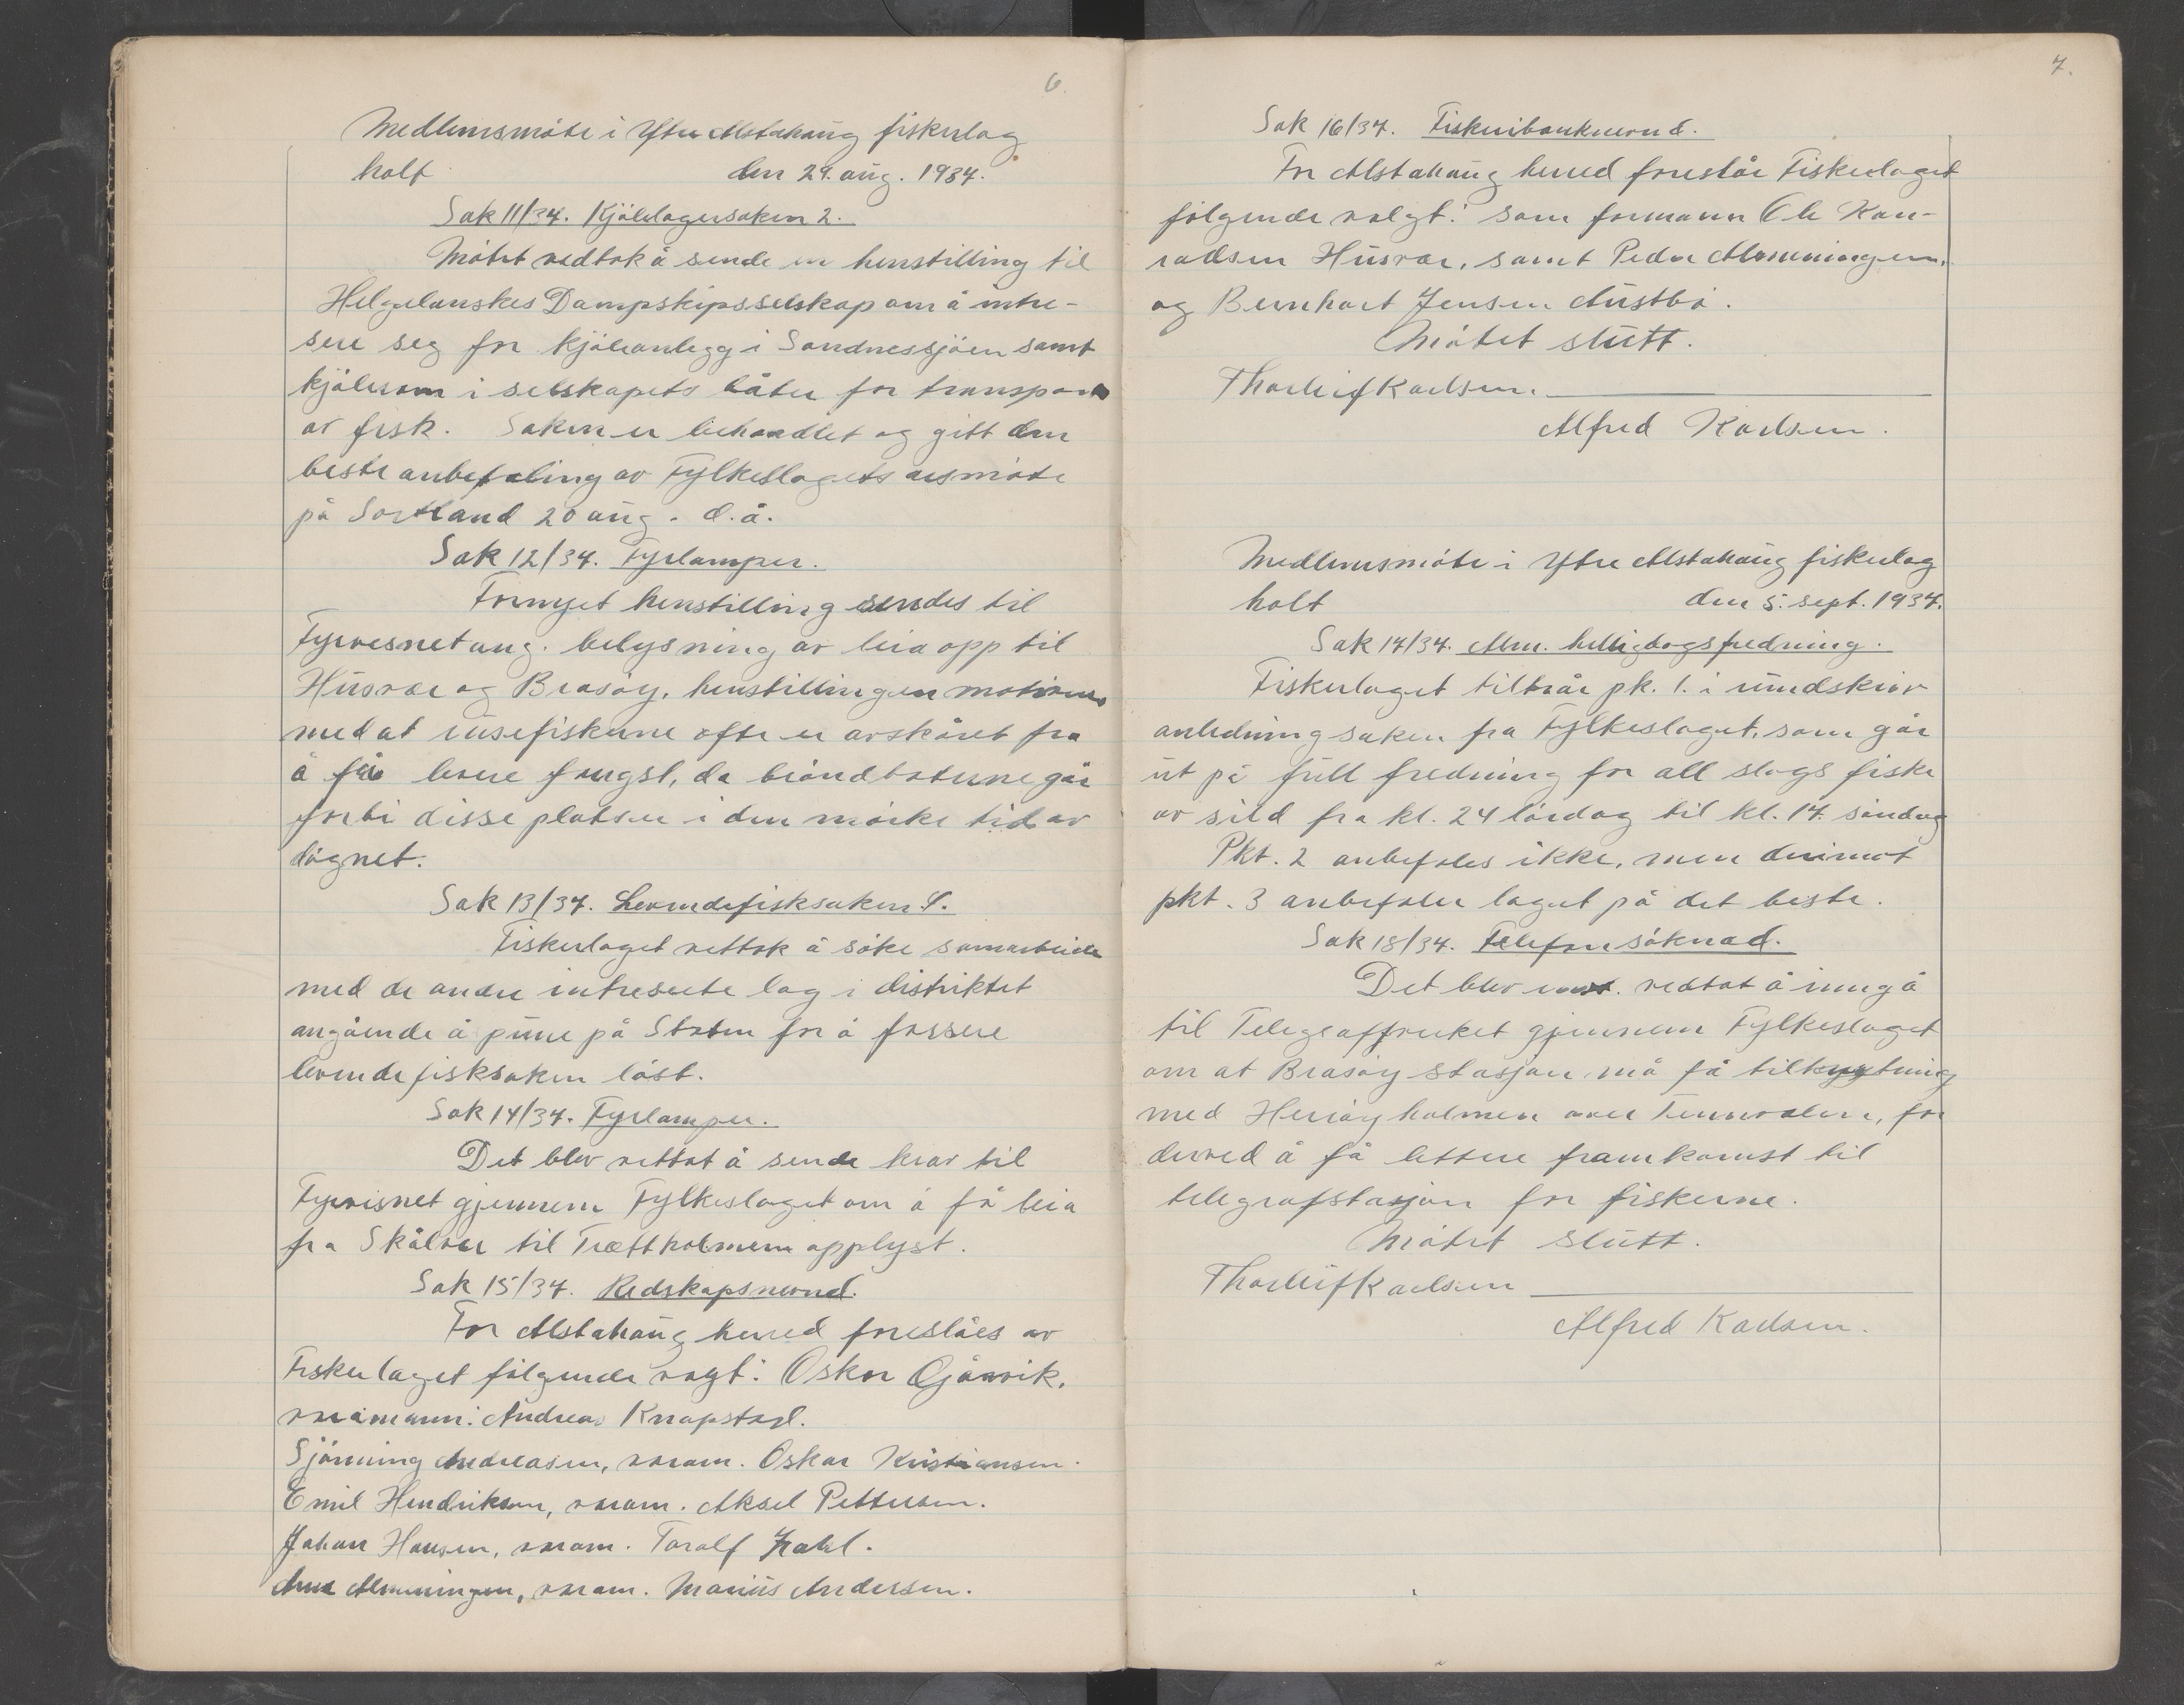 6.
Medlemsmöte i Ytre Alstahaug fiskerlag
holt den 29. aug. 1934.
Sak 11/34. Kjölelagersaken 2.
Mötet vedtok å sende en henstilling til
Helgelanskes Dampskipsselskap om å intre-
sere seg for kjöleanlegg i Sandnessjöen samt
kjölerom i selskapets båter for transport
av fisk. Saken er behandlet og gitt den
beste anbefaling av Fylkeslagets årsmöte
på Sortland 20 aug. d.å.
Sak 12/34. Fyrlamper.
Fornyet henstilling sendes til
Fyrvesnet ang. belysning av leia opp til
Husvær og Brasöy, henstillingen motiveres
med at usefiskerne ofte er avskåret fra
å få levere fangst, da bröndbåtene går
forbi disse platser i den mörke tid av
dögnet.
Sak 13/34. Levendefisksaken 4.
Fiskerlaget vettok å söke samarbeide
med de andre intreserte lag i distriktet
angående å pune på Staten for å forsere
levendefisksaken löst.
Sak 14/34. Fyrlamper.
Det blev vettat å sende krav til
Fyrvisnet gjennem Fylkeslaget om å få leia
fra Skålvær til Trættholmen opplyst.
Sak 15/34. Redskapsnevnd.
For Alstahaug herred foreslåes av
Fiskerlaget fölgende valgt: Oskar Gjåvik,
varamann: Andreas Knapstad.
Sjönning Andreasen, varam. Oskar Kristiansen.
Emil Hendriksen, varam. Aksel Pettersen.
Johan Hansen, varam. Toralf Zahl.
Arne Almenningen, varam. Marius Andersen.
7.
Sak 16/34. Fiskeribanknevnd.
For Alstahaug herred foreslår Fiskerlaget
fölgende valgt: som formann Ole Kon-
radsen Husvær, samt Peder Almenningen,
og Bernhart Jensen Austbö.
Mötet slutt.
Thorleif Karlsen.
Alfred Karlsen.
Medlemsmöte i Ytre Alstahaug fiskerlag
holt den 5. sept. 1934.
Sak 17/34. Alm. helligdagsfredning.
Fiskerlaget tiltrår pk. 1. i rundskriv
anledning saken fra Fylkeslaget, som går
ut på full fredning for all slags fiske
av sild fra kl. 24 lördag til kl. 17 söndag
Pkt. 2 anbefales ikke, men derimot
pkt. 3 anbefaler laget på det beste.
Sak 18/34. Telefonsöknad.
Det blev vedtat å inngå
til Telegraffverket gjennem Fylkeslaget
om at Brasöy stasjon må få tilknytning
med Heröyholmen over Tennvalen, for
derved å få lettere framkomst til
telegrafstasjon for fiskerne.
Mötet slutt.
Thorleif Karlsen
Alfred Karlsen.